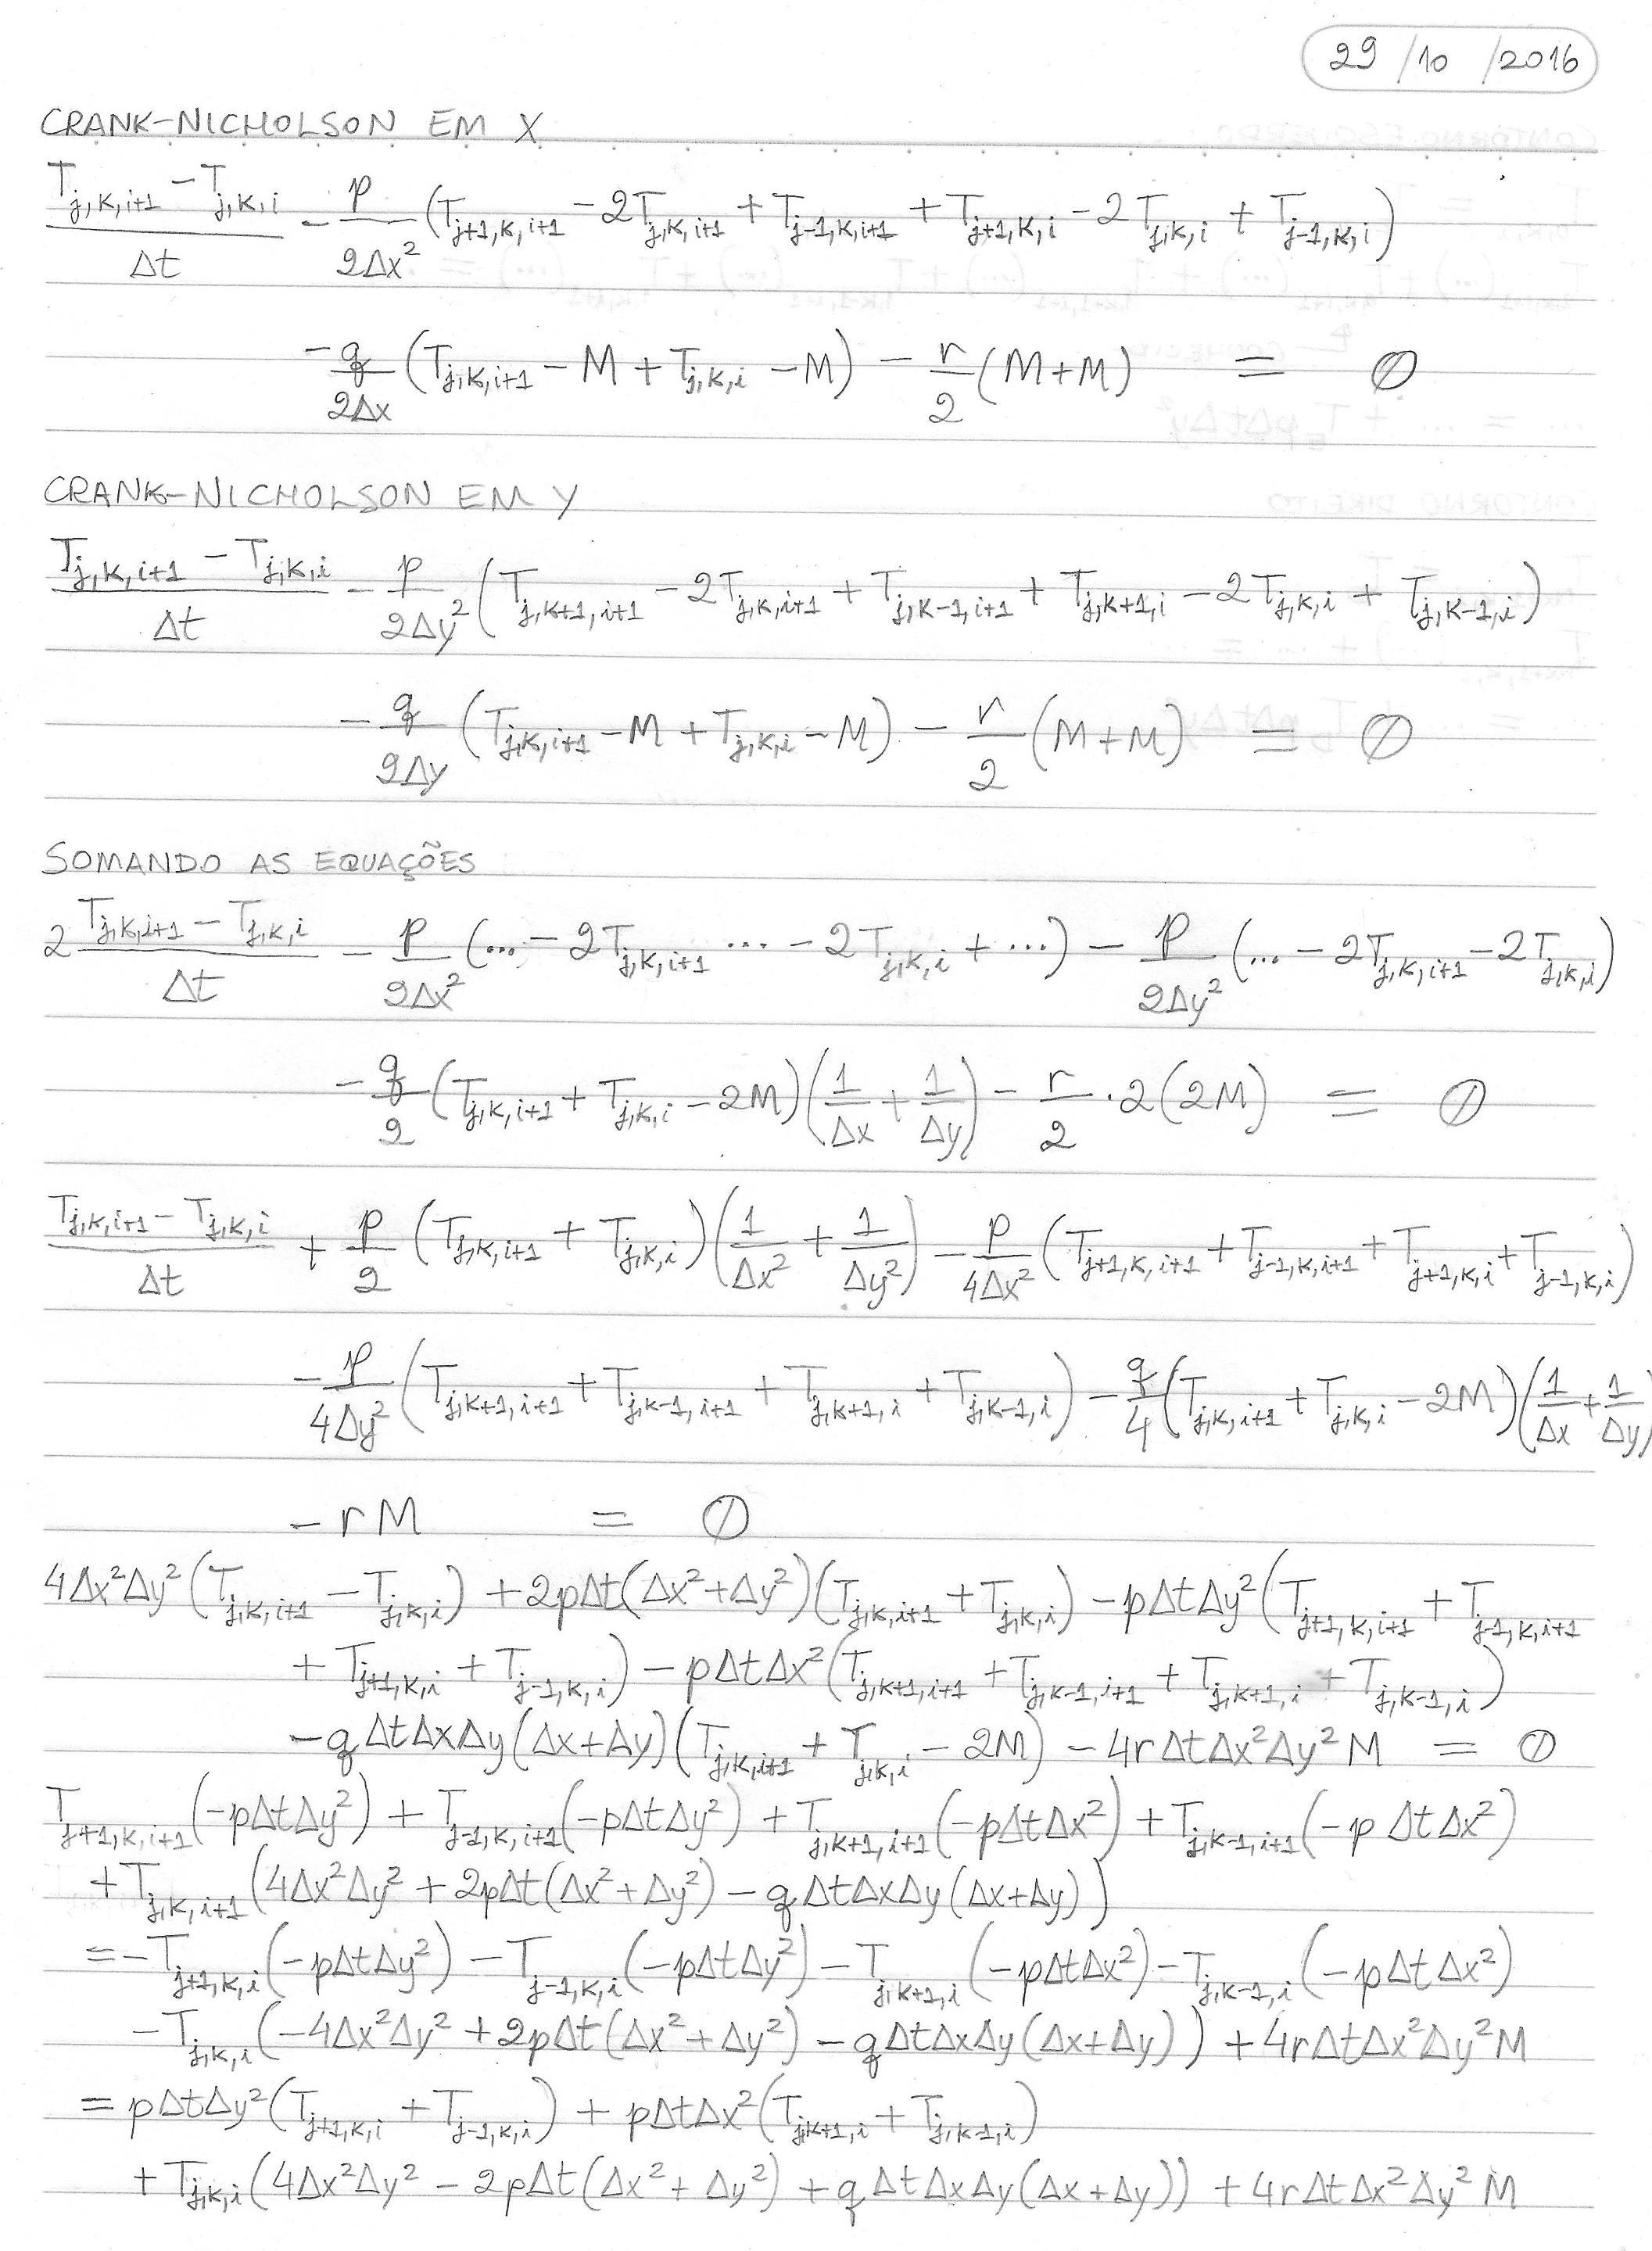 29/10/2016
CRANK-NICHOLSON EM X
\frac{T_{j,k,i+1} - T_{j,k,i}}{Δt} - \frac{p}{2Δx^2}(T_{j+1,k,i+1} - 2T_{j,k,i+1} + T_{j-1,k,i+1} + T_{j+1,k,i} - 2T_{j,k,i} + T_{j-1,k,i})
-\frac{q}{2Δx}(T_{j,k,i+1} - M + T_{j,k,i} - M) - \frac{r}{2}(M+M) = 0
CRANK-NICHOLSON EM Y
\frac{T_{j,k,i+1} - T_{j,k,i}}{Δt} - \frac{p}{2Δy^2}(T_{j,k+1,i+1} - 2T_{j,k,i+1} + T_{j,k-1,i+1} + T_{j,k+1,i} - 2T_{j,k,i} + T_{j,k-1,i})
-\frac{q}{2Δy}(T_{j,k,i+1} - M + T_{j,k,i} - M) - \frac{r}{2}(M+M) = 0
SOMANDO AS EQUAÇÕES
2\frac{T_{j,k,i+1} - T_{j,k,i}}{Δt} - \frac{p}{2Δx^2}(... - 2T_{j,k,i+1} ... - 2T_{j,k,i} + ...) - \frac{p}{2Δy^2}(... - 2T_{j,k,i+1} - 2T_{j,k,i})
-\frac{q}{2}(T_{j,k,i+1} + T_{j,k,i} - 2M)(\frac{1}{Δx} + \frac{1}{Δy}) - \frac{r}{2}·2(2M) = 0
\frac{T_{j,k,i+1} - T_{j,k,i}}{Δt} + \frac{p}{2}(T_{j,k,i+1} + T_{j,k,i})(\frac{1}{Δx^2} + \frac{1}{Δy^2}) - \frac{p}{4Δx^2}(T_{j+1,k,i+1} + T_{j-1,k,i+1} + T_{j+1,k,i} + T_{j-1,k,i})
-\frac{p}{4Δy^2}(T_{j,k+1,i+1} + T_{j,k-1,i+1} + T_{j,k+1,i} + T_{j,k-1,i}) - \frac{q}{4}(T_{j,k,i+1} + T_{j,k,i} - 2M)(\frac{1}{Δx} + \frac{1}{Δy})
-rM = 0
4Δx^2Δy^2(T_{j,k,i+1} - T_{j,k,i}) + 2pΔt(Δx^2+Δy^2)(T_{j,k,i+1} + T_{j,k,i}) - pΔtΔy^2(T_{j+1,k,i+1} + T_{j-1,k,i+1}
+ T_{j+1,k,i} + T_{j-1,k,i}) - pΔtΔx^2(T_{j,k+1,i+1} + T_{j,k-1,i+1} + T_{j,k+1,i} + T_{j,k-1,i})
-qΔtΔxΔy(Δx+Δy)(T_{j,k,i+1} + T_{j,k,i} - 2M) - 4rΔtΔx^2Δy^2M = 0
T_{j+1,k,i+1}(-pΔtΔy^2) + T_{j-1,k,i+1}(-pΔtΔy^2) + T_{j,k+1,i+1}(-pΔtΔx^2) + T_{j,k-1,i+1}(-pΔtΔx^2)
+T_{j,k,i+1}(4Δx^2Δy^2 + 2pΔt(Δx^2+Δy^2) - qΔtΔxΔy(Δx+Δy))
=-T_{j+1,k,i}(-pΔtΔy^2) - T_{j-1,k,i}(-pΔtΔy^2) - T_{j,k+1,i}(-pΔtΔx^2) - T_{j,k-1,i}(-pΔtΔx^2)
-T_{j,k,i}(-4Δx^2Δy^2 + 2pΔt(Δx^2+Δy^2) - qΔtΔxΔy(Δx+Δy)) + 4rΔtΔx^2Δy^2M
= pΔtΔy^2(T_{j+1,k,i} + T_{j-1,k,i}) + pΔtΔx^2(T_{j,k+1,i} + T_{j,k-1,i})
+ T_{j,k,i}(4Δx^2Δy^2 - 2pΔt(Δx^2+Δy^2) + qΔtΔxΔy(Δx+Δy)) + 4rΔtΔx^2Δy^2M